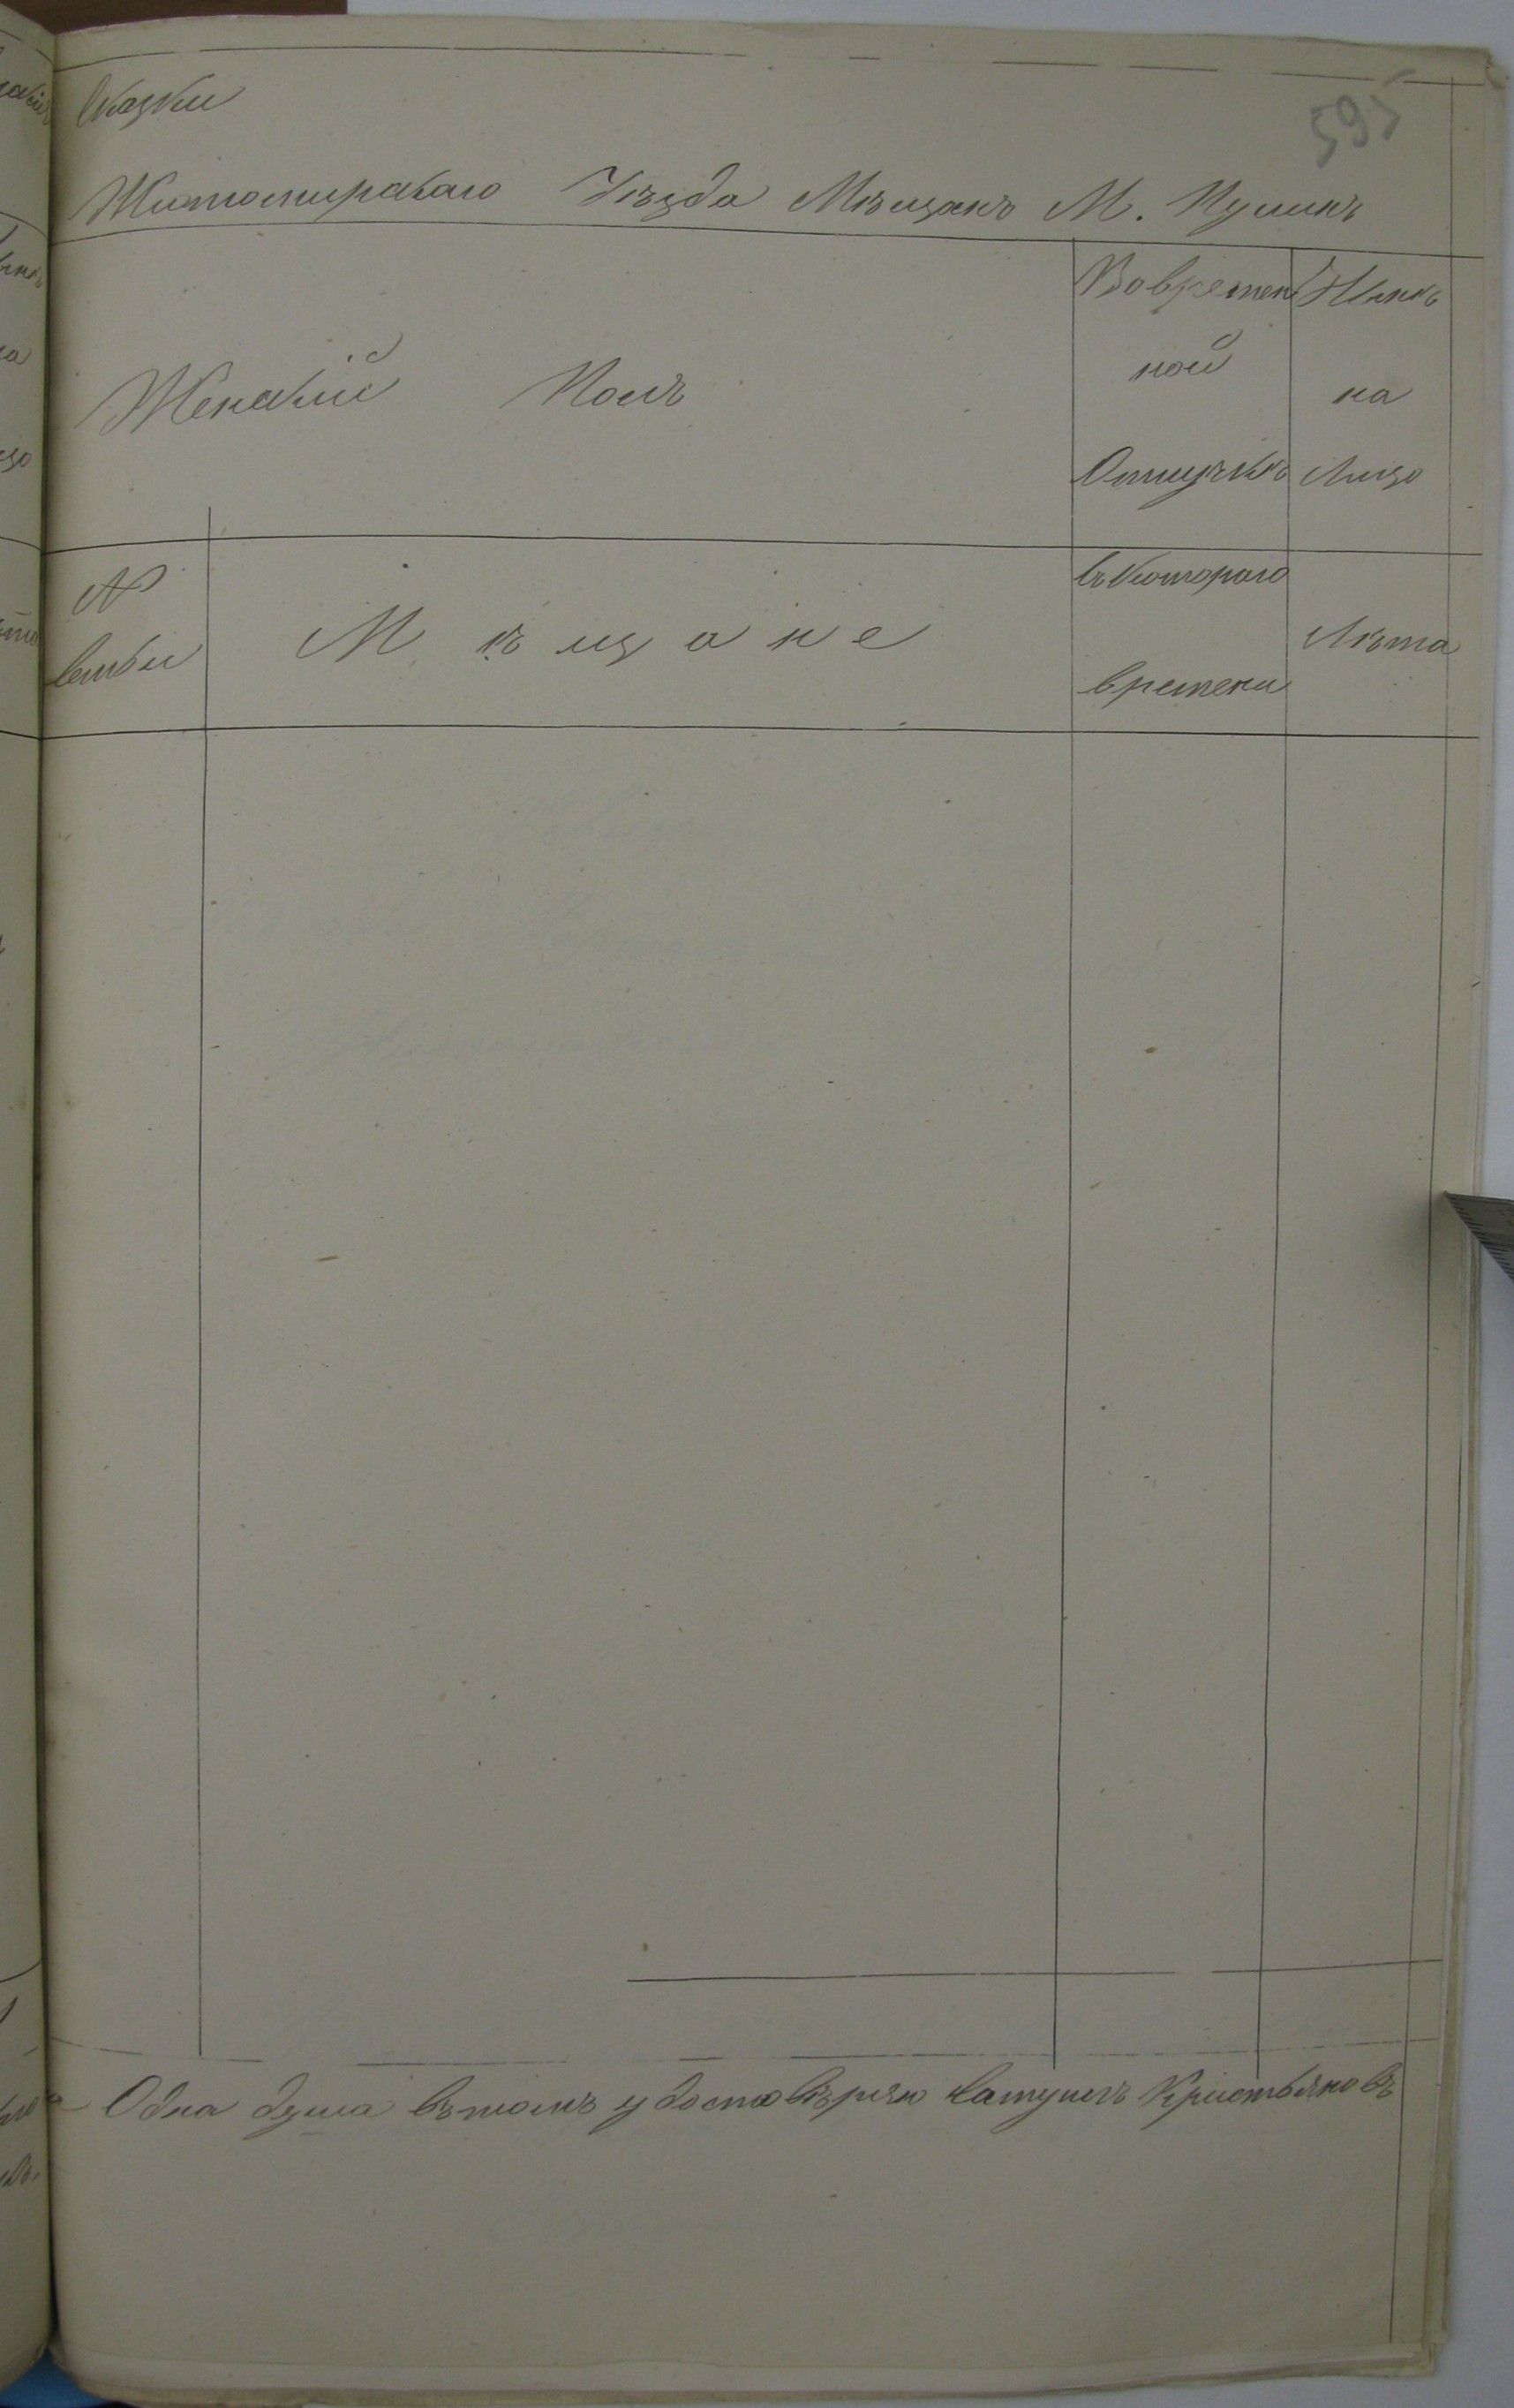 595
Сказки
Житомирскаго Уѣзда Мѣщанъ М. Пулинъ
Женскій Полъ
Вовремен
ной
Отлучкѣ
Нынѣ
на
Лицо
№
семьи
Мѣщане
съ котораго
времени
Лѣта
Одна душа въ томъ удостовѣряю